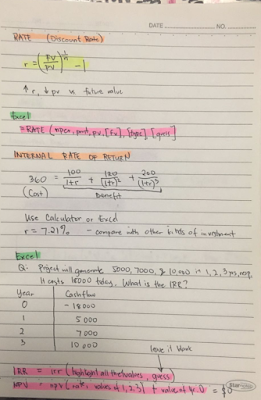 DATE NO
RATE (Discount Rate)
r = (FV/PV)^1/n - 1
↑ r, ↓ pv vs future value
Excel
=RATE (nper, pmt, pv, [fv], [type], [guess])
INTERNAL RATE OF RETURN
360 = 100/1+r + 180/(1+r)² + 200/(1+r)³
(Cost) Benefit
Use Calculator or Excel
r = 7.21% - compare with other kinds of investment
Excel
Q: Project will generate 5000, 7000, & 10,000 in 1, 2, 3 yrs, resp.
It costs 18000 today. What is the IRR?
Year Cashflow
0 - 18000
1 5000
2 7000
3 10000
leave it blank
IRR = irr (highlight all the values, guess)
NPV = npv (rate, values of 1,2,3) + value of yr. 0 = $0